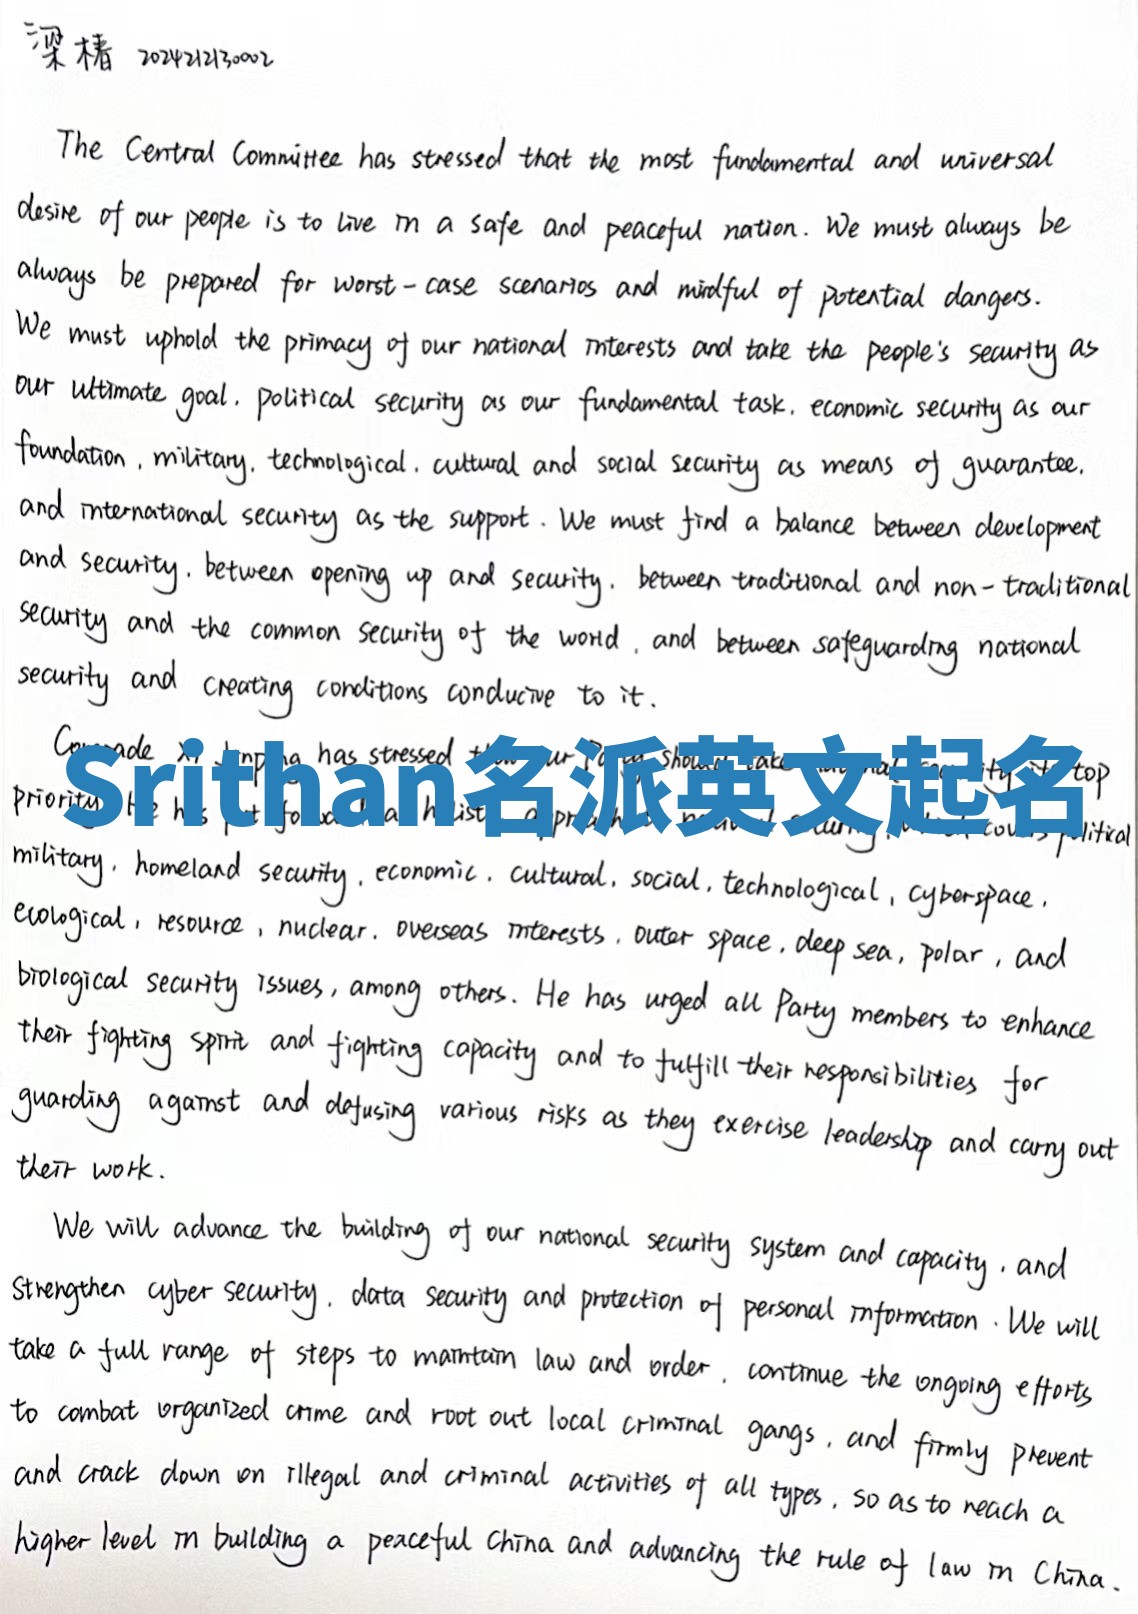 梁椿 2024212130002
The Central Committee has stressed that the most fundamental and universal
desire of our people is to live in a safe and peaceful nation. We must always be
always be prepared for worst-case scenarios and mindful of potential dangers.
We must uphold the primacy of our national interests and take the people's security as
our ultimate goal, political security as our fundamental task, economic security as our
foundation, military, technological, cultural and social security as means of guarantee,
and international security as the support. We must find a balance between development
and security, between opening up and security, between traditional and non-traditional
security and the common security of the world, and between safeguarding national
security and creating conditions conducive to it.
has stressed top
Srithan名派英文起名
priority political
military, homeland security, economic, cultural, social, technological, cyberspace,
ecological, resource, nuclear, overseas interests, outer space, deep sea, polar, and
biological security issues, among others. He has urged all Party members to enhance
their fighting spirit and fighting capacity and to fulfill their responsibilities for
guarding against and defusing various risks as they exercise leadership and carry out
their work.
We will advance the building of our national security system and capacity, and
strengthen cyber security, data security and protection of personal information. We will
take a full range of steps to maintain law and order, continue the ongoing efforts
to combat organized crime and root out local criminal gangs, and firmly prevent
and crack down on illegal and criminal activities of all types, so as to reach a
higher level in building a peaceful China and advancing the rule of law in China.